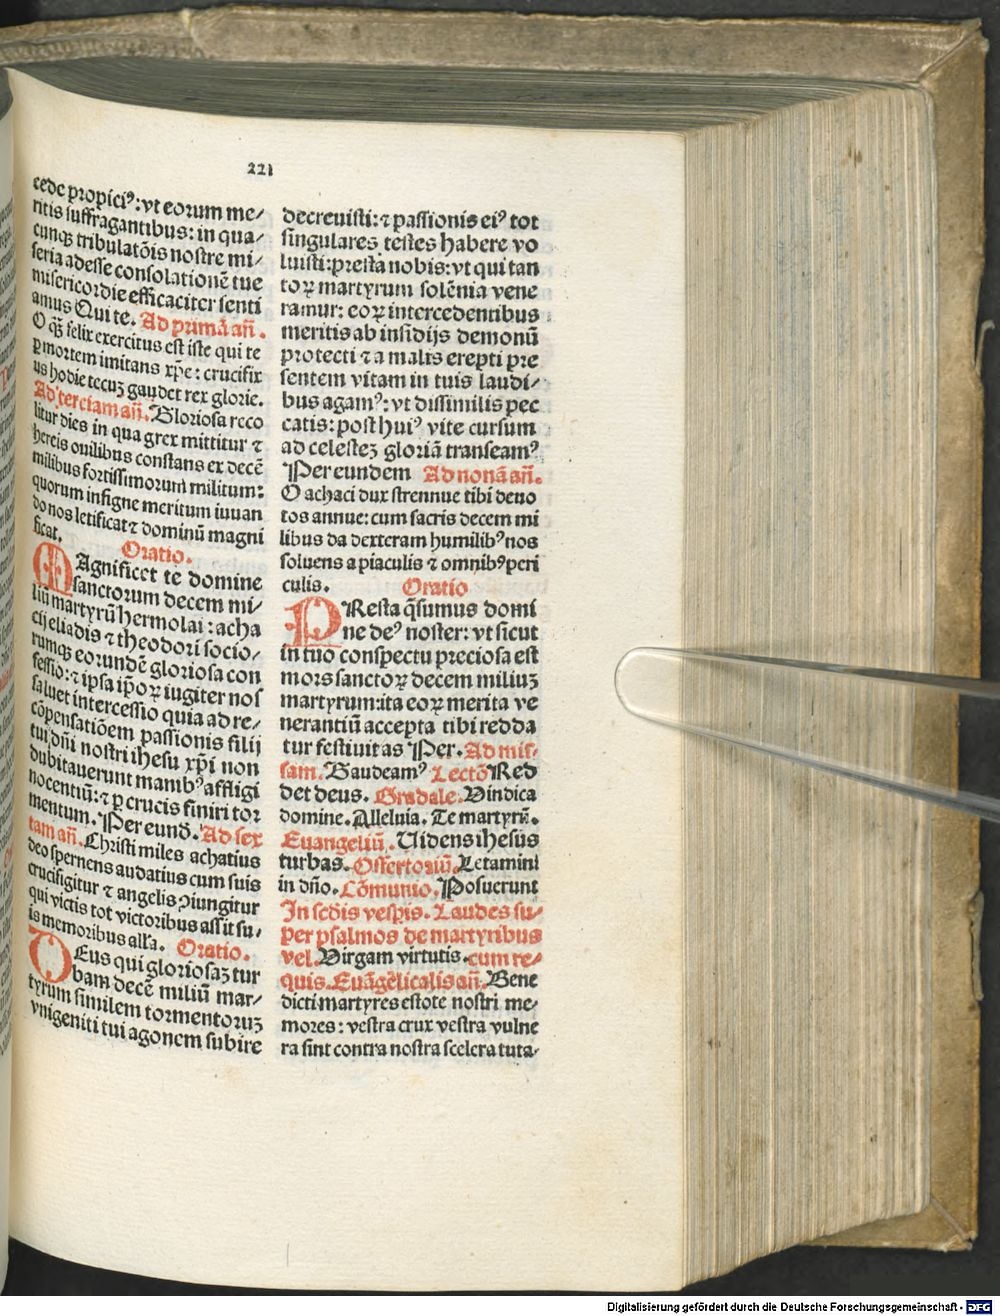 221
cede propiciꝰ: vt eorum me⸗
ritis suffragantibus: in qua⸗
cunqꝫ tribulatōis nostre mi⸗
seria adesse consolationē tue
misericordie efficaciter senti
amus Qui te. Ad primā añ.
O qꝫ felix exercitus est iste qui te
ꝑ mortem imitans xp̄e: crucifix
us hodie tecuꝫ gaudet rex glorie.
Ad terciam añ. Gloriosa reco
litur dies in qua grex mittitur ⁊
hereis ouilibus constans ex decē
milibus fortissimorum militum:
quorum insigne meritum iuuan
do nos letificat ⁊ dominū magni
ficat.
Oratio.
MAgnificet te domine
sanctorum decem mi⸗
liū martyrū hermolai: acha
cij eliadis ⁊ theodori socio⸗
rumqꝫ eorundē gloriosa con
fessio: ⁊ ipsa ip̄oꝝ iugiter nos
saluet intercessio quia ad re⸗
cōpensatiōem passionis filij
tui dn̄i nostri ihesu xp̄i non
dubitauerunt manibꝰ affligi
nocentiū: ⁊ ꝑ crucis finiri tor
mentum. Per eund̄. Ad sex
tam añ. Christi miles achatius
deo spernens audatius cum suis
crucifigitur ⁊ angelis ꝯiungitur
qui victis tot victoribus assit su⸗
is memoribus alľa. Oratio.
DEus qui gloriosaꝫ tur
bam decē miliū mar⸗
tyrum similem tormentoruꝫ
vnigeniti tui agonem subire
decreuisti: ⁊ passionis eiꝰ tot
singulares testes habere vo
luisti: presta nobis: vt qui tan
toꝝ martyrum solēnia vene
ramur: eoꝝ intercedentibus
meritis ab insidijs demonū
protecti ⁊ a malis erepti pre
sentem vitam in tuis laudi⸗
bus agamꝰ: vt dissimilis pec
catis: post huiꝰ vite cursum
ad celesteꝫ gloriā transeamꝰ
Per eundem Ad nonā añ.
O achaci dux strennue tibi deuo
tos annue: cum sacris decem mi
libus da dexteram humilibꝰ nos
soluens a piaculis ⁊ omnibꝰ peri
culis. Oratio
PResta q̄sumus domi
ne deꝰ noster: vt sicut
in tuo conspectu preciosa est
mors sanctoꝝ decem miliuꝫ
martyrum: ita eoꝝ merita ve
nerantiū accepta tibi redda
tur festiuitas Per. Ad mis⸗
sam. Gaudeamꝰ Lectō Red
det deus. Gradale. Vindica
domine. Alleluia. Te martyrū.
Euangeliū. Uidens ihesus
turbas. Offertoriū. Letamini
in dño. Cōmunio. Posuerunt
In scd̄is vesꝑis. Laudes su⸗
per psalmos de martyribus
vel. Virgam virtutis. cum re⸗
quis. Euāgēlicalis añ. Bene
dicti martyres estote nostri me⸗
mores: vestra crux vestra vulne
ra sint contra nostra scelera tuta⸗
Digitalisierung gefördert durch die Deutsche Forschungsgemeinschaft - DFG